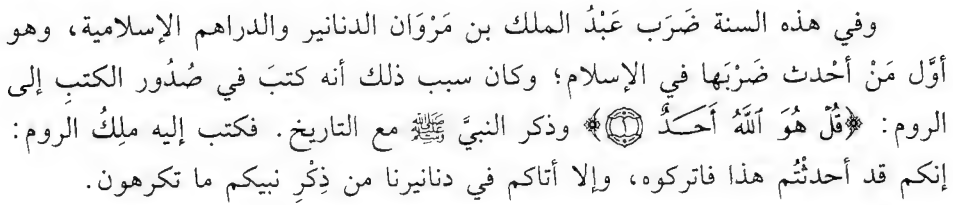 وفي هذه السنة ضَرَب عَبْدُ الملك بن مَرْوَان الدنانير والدراهم الإسلامية، وهو
أوَّل مَنْ أحْدث ضَرْبَها في الإسلام؛ وكان سبب ذلك أنه كتبَ في صُدُور الكتبِ إلى
الروم: ﴿قُلْ هُوَ ٱللَّهُ أَحَـــدٌ ۝١﴾ وذكر النبيَّ ﷺ مع التاريخ. فكتب إليه ملِكُ الروم:
إنكم قد أحدثْتُم هذا فاتركوه، وإلا أتاكم في دنانيرنا من ذِكْرِ نبيكم ما تكرهون.